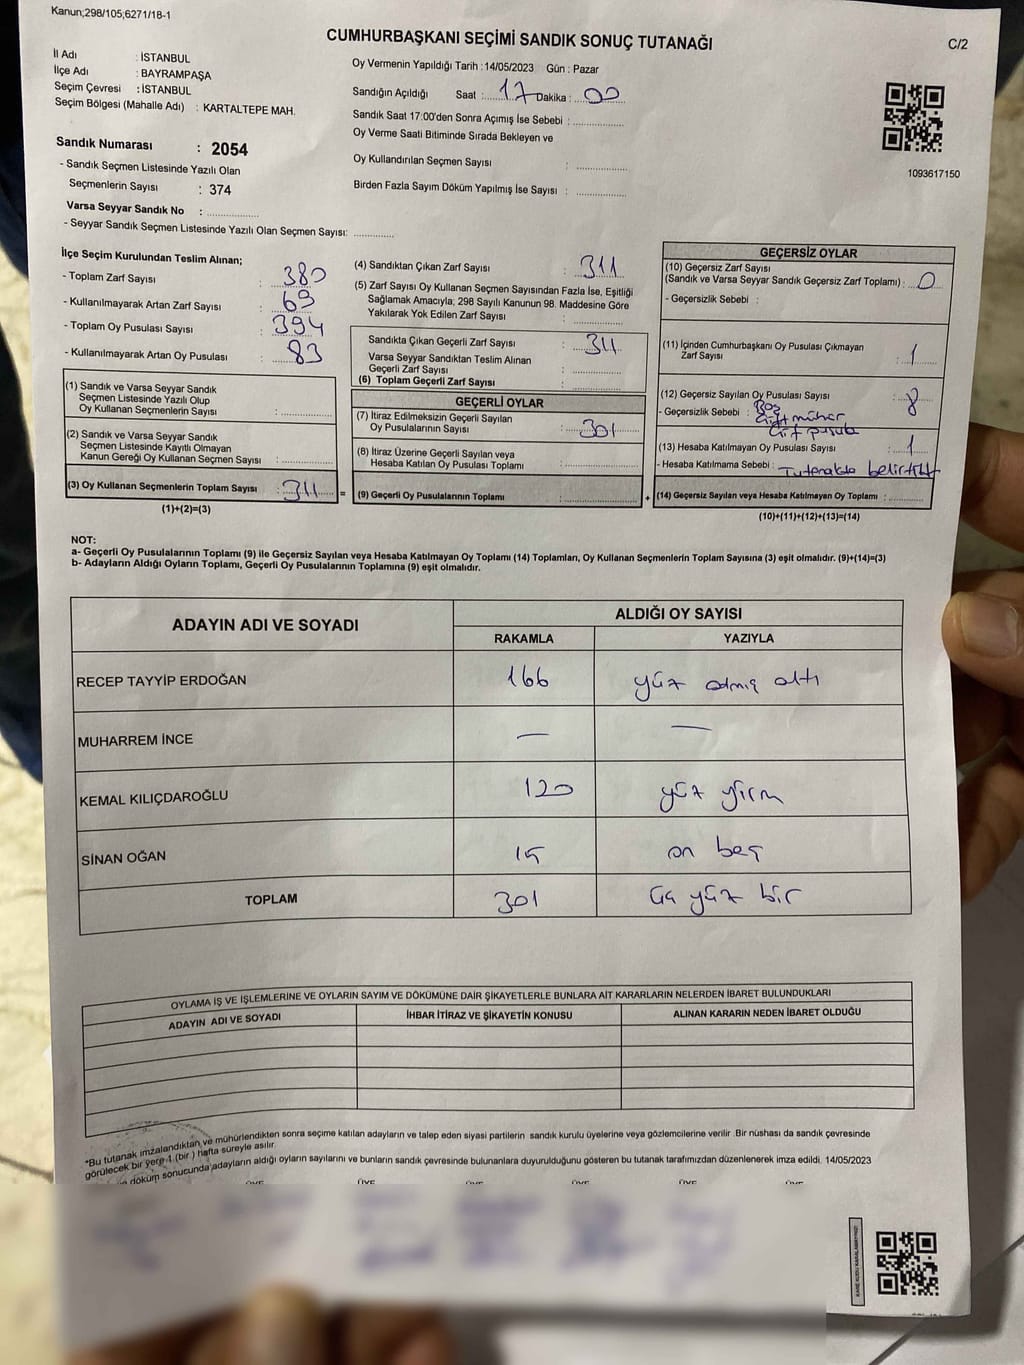 Kanun;298/105;6271/18-1
C/2
CUMHURBAŞKANI SEÇİMİ SANDIK SONUÇ TUTANAĞI
İl Adı : İSTANBUL
İlçe Adı : BAYRAMPAŞA
Seçim Çevresi : İSTANBUL
Seçim Bölgesi (Mahalle Adı) : KARTALTEPE MAH.
Sandık Numarası : 2054
- Sandık Seçmen Listesinde Yazılı Olan
Seçmenlerin Sayısı : 374
Varsa Seyyar Sandık No :
- Seyyar Sandık Seçmen Listesinde Yazılı Olan Seçmen Sayısı:
Oy Vermenin Yapıldığı Tarih :14/05/2023 Gün : Pazar
Sandığın Açıldığı Saat : 17 Dakika : 00
Sandık Saat 17:00'den Sonra Açımış İse Sebebi :
Oy Verme Saati Bitiminde Sırada Bekleyen ve
Oy Kullandırılan Seçmen Sayısı :
Birden Fazla Sayım Döküm Yapılmış İse Sayısı :
1093617150
İlçe Seçim Kurulundan Teslim Alınan;
- Toplam Zarf Sayısı : 380
- Kullanılmayarak Artan Zarf Sayısı : 69
- Toplam Oy Pusulası Sayısı : 394
- Kullanılmayarak Artan Oy Pusulası : 83
(1) Sandık ve Varsa Seyyar Sandık
Seçmen Listesinde Yazılı Olup
Oy Kullanan Seçmenlerin Sayısı :
(2) Sandık ve Varsa Seyyar Sandık
Seçmen Listesinde Kayıtlı Olmayan
Kanun Gereği Oy Kullanan Seçmen Sayısı :
(3) Oy Kullanan Seçmenlerin Toplam Sayısı : 311 =
(1)+(2)=(3)
(4) Sandıktan Çıkan Zarf Sayısı : 311
(5) Zarf Sayısı Oy Kullanan Seçmen Sayısından Fazla İse, Eşitliği
Sağlamak Amacıyla; 298 Sayılı Kanunun 98. Maddesine Göre
Yakılarak Yok Edilen Zarf Sayısı :
Sandıkta Çıkan Geçerli Zarf Sayısı : 311
Varsa Seyyar Sandıktan Teslim Alınan
Geçerli Zarf Sayısı :
(6) Toplam Geçerli Zarf Sayısı :
GEÇERLİ OYLAR
(7) İtiraz Edilmeksizin Geçerli Sayılan
Oy Pusulalarının Sayısı : 301
(8) İtiraz Üzerine Geçerli Sayılan veya
Hesaba Katılan Oy Pusulası Toplamı :
(9) Geçerli Oy Pusulalarının Toplamı : +
GEÇERSİZ OYLAR
(10) Geçersiz Zarf Sayısı
(Sandık ve Varsa Seyyar Sandık Geçersiz Zarf Toplamı) : 0
- Geçersizlik Sebebi :
(11) İçinden Cumhurbaşkanı Oy Pusulası Çıkmayan
Zarf Sayısı : 1
(12) Geçersiz Sayılan Oy Pusulası Sayısı : 8
- Geçersizlik Sebebi : Boş
Çift mühür
Çift pusula
(13) Hesaba Katılmayan Oy Pusulası Sayısı : 1
- Hesaba Katılmama Sebebi : Tutanakta belirtildi
(14) Geçersiz Sayılan veya Hesaba Katılmayan Oy Toplamı :
(10)+(11)+(12)+(13)=(14)
NOT:
a- Geçerli Oy Pusulalarının Toplamı (9) ile Geçersiz Sayılan veya Hesaba Katılmayan Oy Toplamı (14) Toplamları, Oy Kullanan Seçmenlerin Toplam Sayısına (3) eşit olmalıdır. (9)+(14)=(3)
b- Adayların Aldığı Oyların Toplamı, Geçerli Oy Pusulalarının Toplamına (9) eşit olmalıdır.
ADAYIN ADI VE SOYADI
ALDIĞI OY SAYISI
RAKAMLA YAZIYLA
RECEP TAYYİP ERDOĞAN 166 yüz atmış altı
MUHARREM İNCE — —
KEMAL KILIÇDAROĞLU 120 yüz yirm
SİNAN OĞAN 15 on beş
TOPLAM 301 üç yüz bir
OYLAMA İŞ VE İŞLEMLERİNE VE OYLARIN SAYIM VE DÖKÜMÜNE DAİR ŞİKAYETLERLE BUNLARA AİT KARARLARIN NELERDEN İBARET BULUNDUKLARI
ADAYIN ADI VE SOYADI İHBAR İTİRAZ VE ŞİKAYETİN KONUSU ALINAN KARARIN NEDEN İBARET OLDUĞU
*Bu tutanak imzalandıktan ve mühürlendikten sonra seçime katılan adayların ve talep eden siyasi partilerin sandık kurulu üyelerine veya gözlemcilerine verilir .Bir nüshası da sandık çevresinde
görülecek bir yere 1 (bir ) hafta süreyle asılır.
döküm sonucunda adayların aldığı oyların sayılarını ve bunların sandık çevresinde bulunanlara duyurulduğunu gösteren bu tutanak tarafımızdan düzenlenerek imza edildi. 14/05/2023